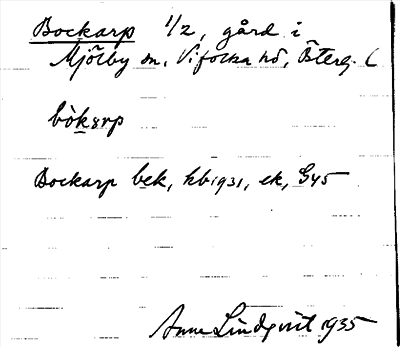 Bockarp 1/2, gård i
Mjölby sn, Vifolka hd, Österg. (
bòkarp
Bockarp bek, kb 1931, ek, G45
Anna Lindqvist 1935